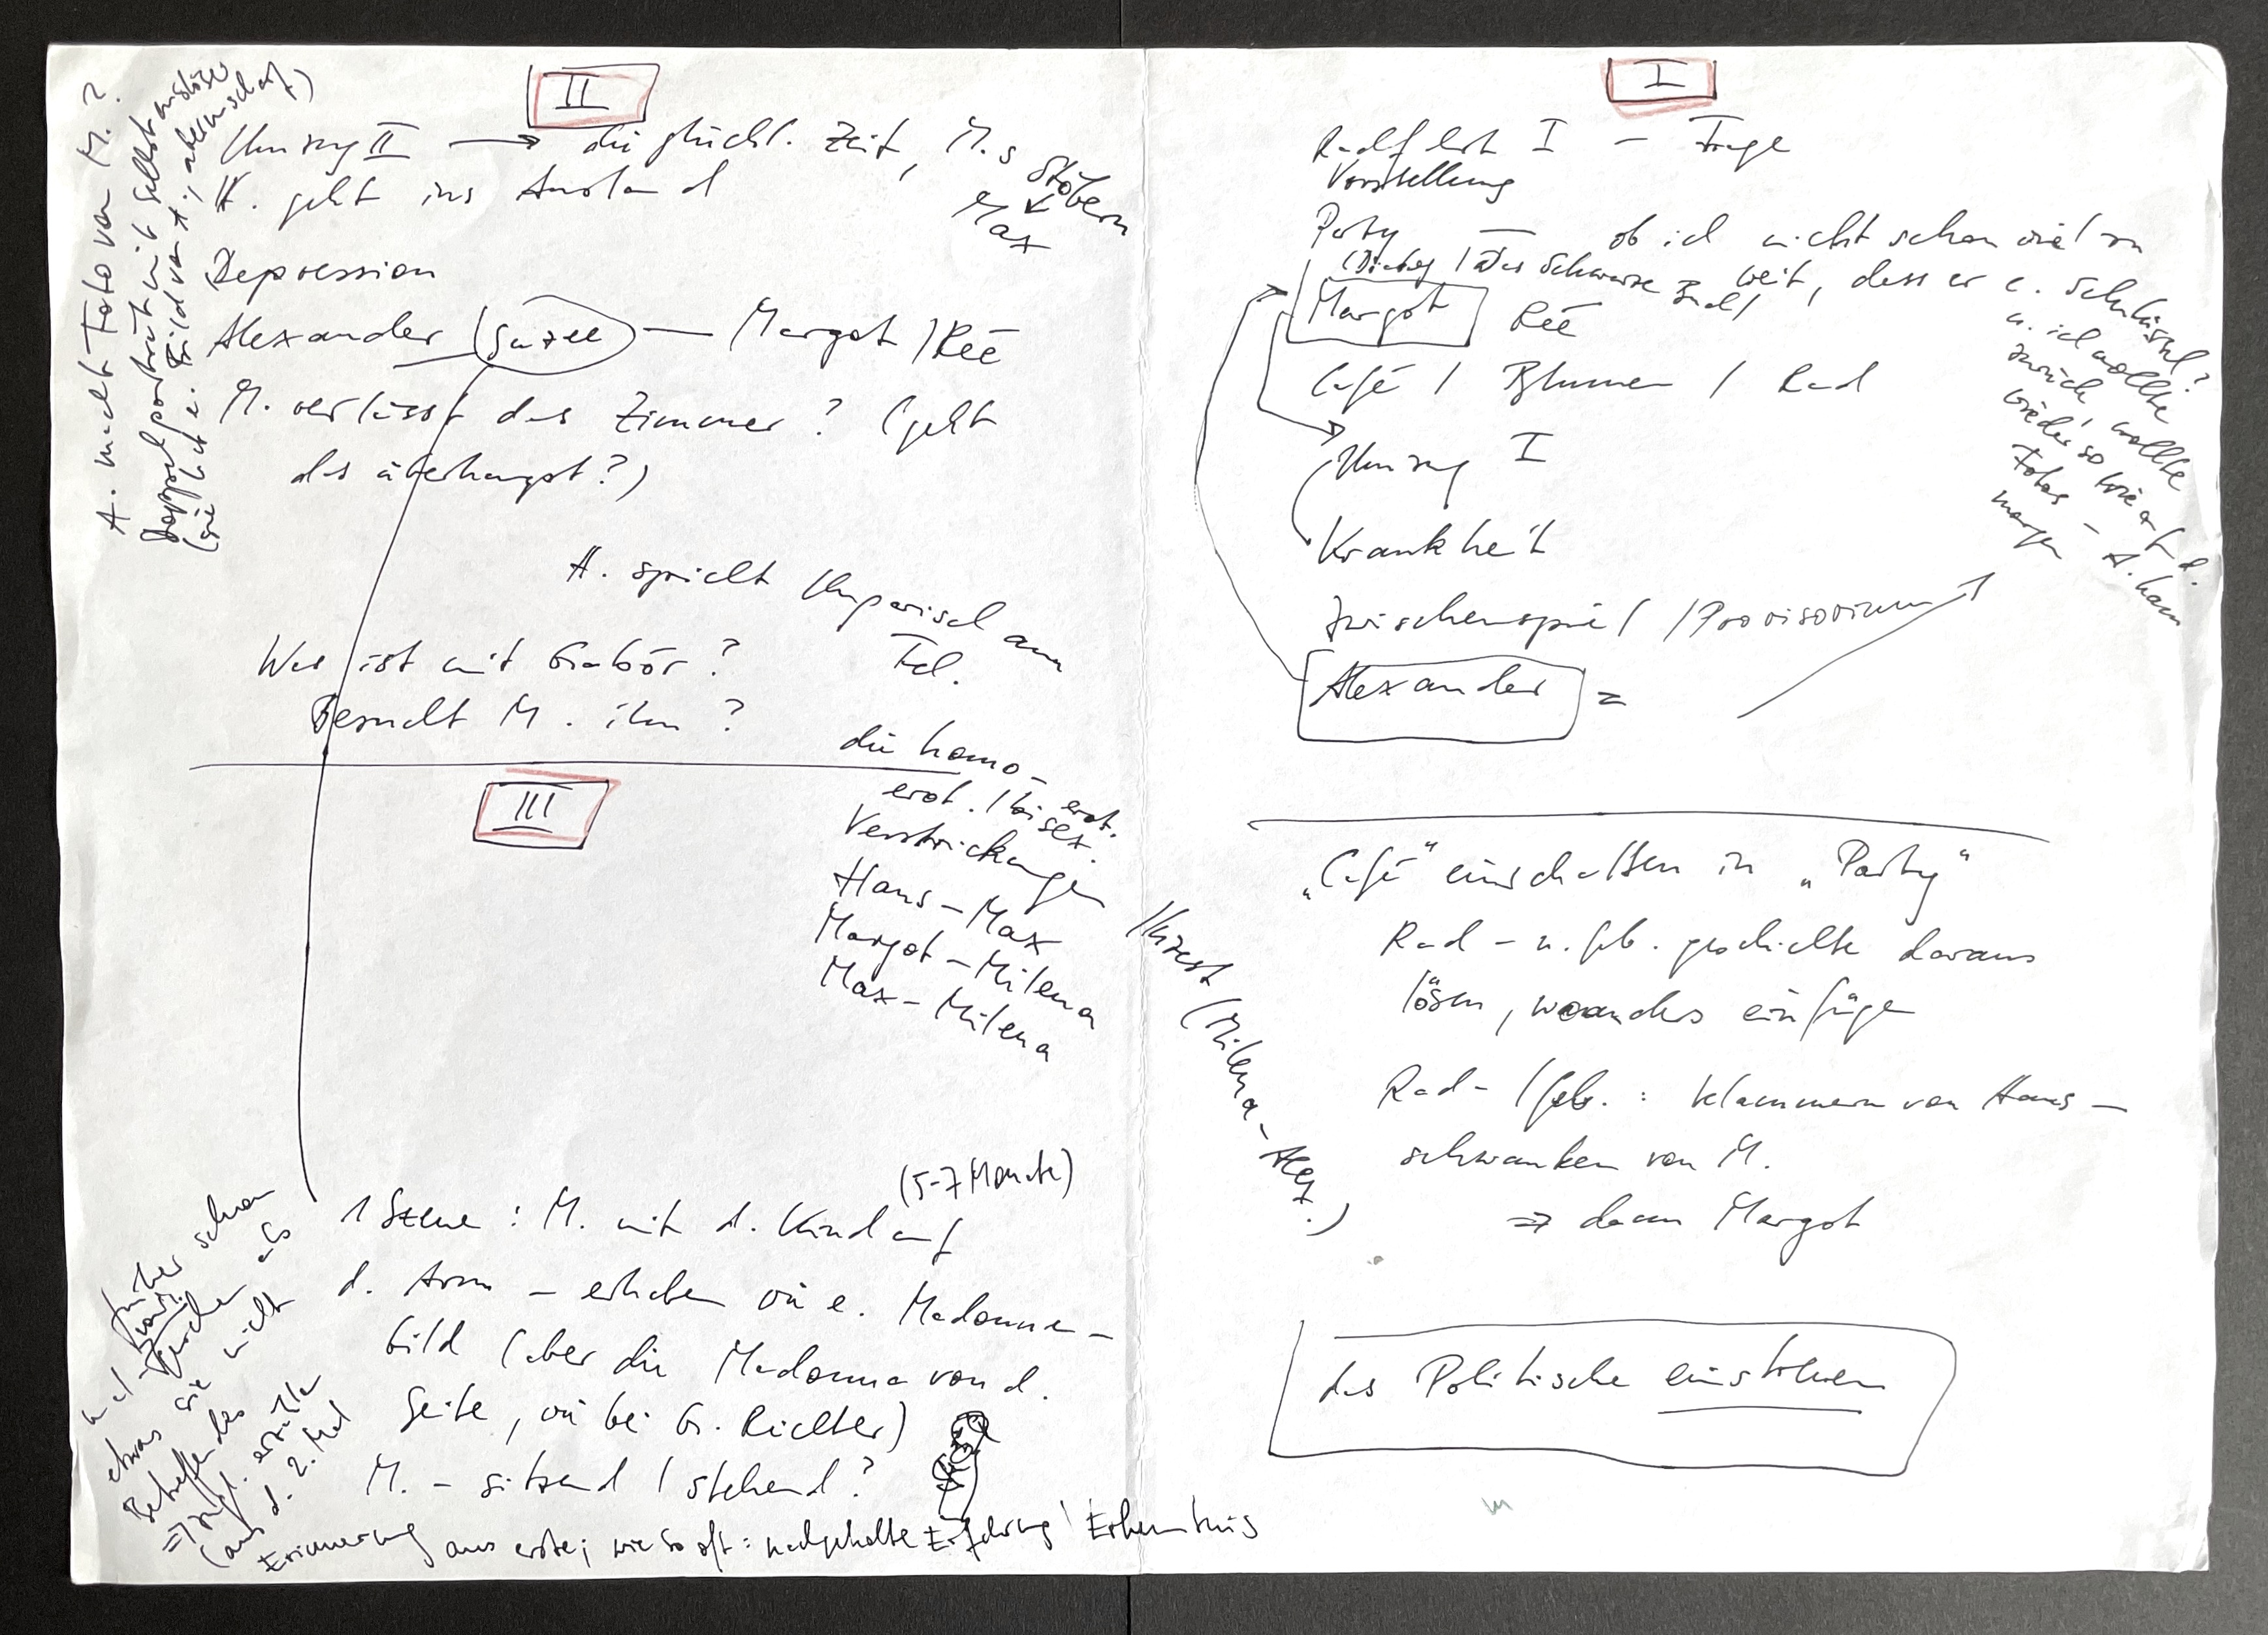 II
Umzug II → die glückl. Zeit, M.s Stöbern
↙
Max
H. geht ins Ausland
Depression
Alexander (Suzee) — Margot / Reé
M. verlässt das Zimmer? (geht
das überhaupt?)
H. spielt Ungarisch am
Tel.
Was ist mit Gabór?
Besucht M. ihn?
A. macht Foto von M.?
Doppelporträt mit Selbstauslöser
(sie hat e. Bild von A., aber unscharf)
III
die homo-
erot. / bisex. erot.
Verstrickungen
Hans – Max
Margot – Milena
Max – Milena
/ Inzest (Milena – Alex.)
(5-7 Monate)
1 Szene: M. mit d. Kind auf
d. Arm – erhaben wie e. Madonna-
bild (aber die Madonna von d.
Seite, wie bei G. Richter)
M. – sitzend / stehend?
früher schon
als
etwas sie nicht
Betreffendes
⇒ erzählen
(aus d. 2. Mal
Erinnerung ans erste; wie so oft: nachgeholte Erfahrung / Erkenntnis
I
Radfahrt I – Frage
Vorstellung
Party — ob ich nicht schon viel zu
weit, dass er e. Schlüssel?
u. ich wollte
zurück, wollte
wieder so wie auf d.
Fotos – A. kam
morgen
(Dialog / Das Schwarze Bad)
Margot Reé
Café / Blumen / Rad
Umzug I
Krankheit
Zwischenspiel / Provisorium
Alexander =
„Café“ einschalten in „Party“
Rad – u. Geb. geschichte daraus
lösen, woanders einfügen
Rad- / Geb.: Klammern von Hans –
schwanken von M.
⇒ dann Margot
das Politische einstreuen